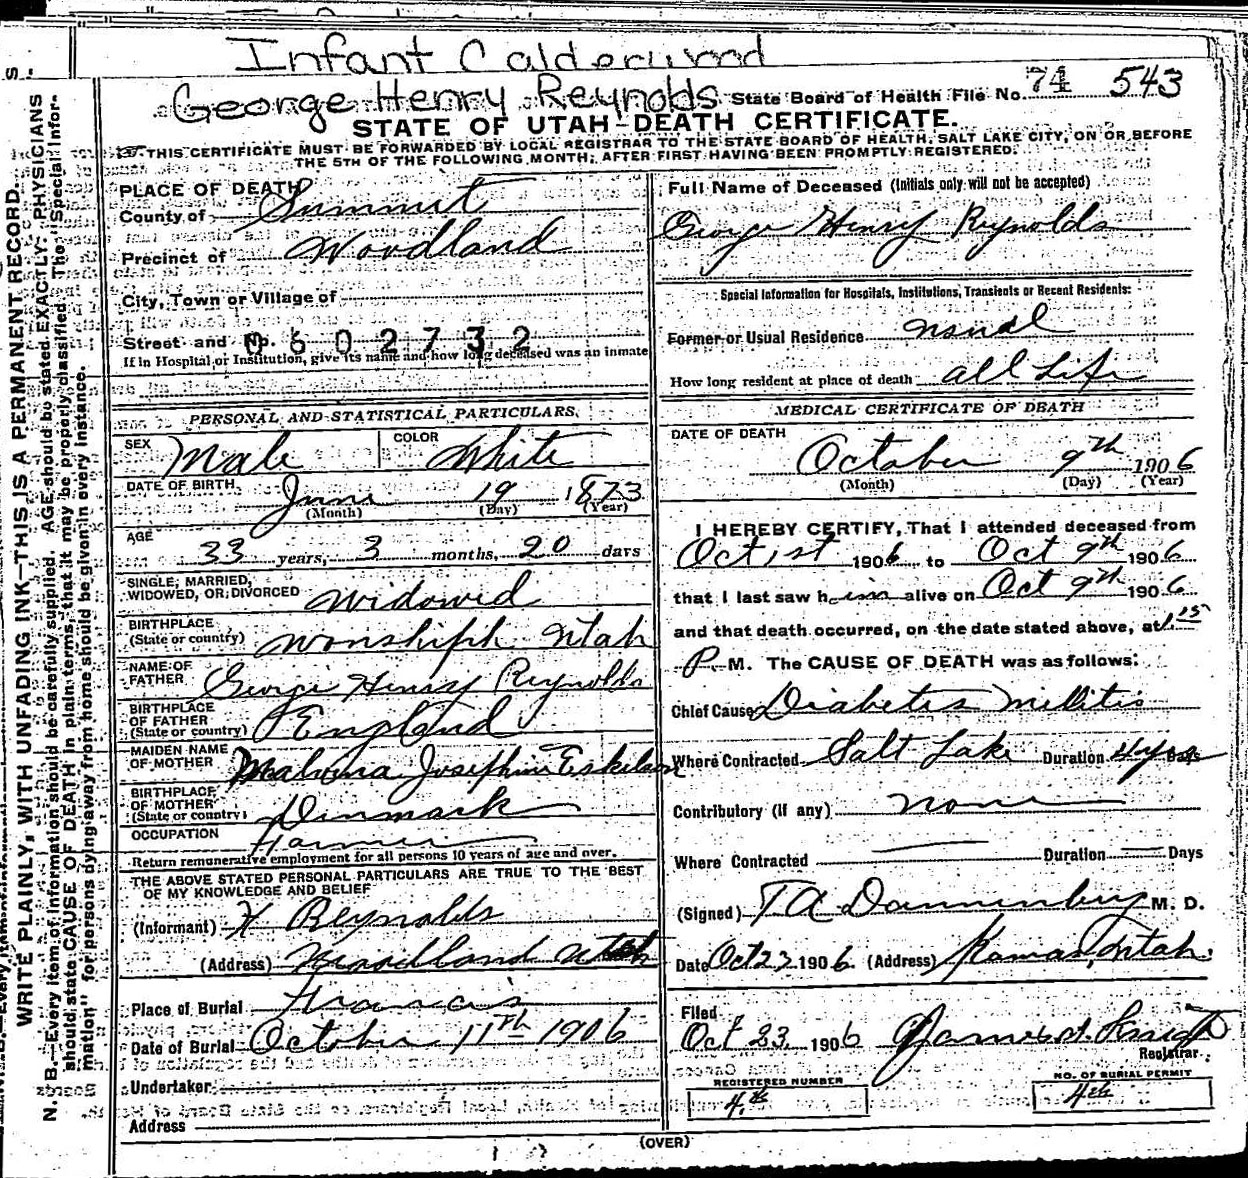 Infant Calderwood
George Henry Reynolds
State Board of Health File No. 74 543
STATE OF UTAH—DEATH CERTIFICATE.
THIS CERTIFICATE MUST BE FORWARDED BY LOCAL REGISTRAR TO THE STATE BOARD OF HEALTH, SALT LAKE CITY, ON OR BEFORE
THE 5TH OF THE FOLLOWING MONTH, AFTER FIRST HAVING BEEN PROMPTLY REGISTERED.
PLACE OF DEATH
County of Summit
Precinct of Woodland
City, Town or Village of
Street and No. 0602732
If in Hospital or Institution, give its name and how long deceased was an inmate
PERSONAL AND STATISTICAL PARTICULARS.
SEX Male COLOR White
DATE OF BIRTH June 19 1873
(Month) (Day) (Year)
AGE 33 years, 3 months, 20 days
SINGLE, MARRIED,
WIDOWED, OR DIVORCED Widowed
BIRTHPLACE
(State or country) Wonshiph Utah
NAME OF
FATHER George Henry Reynolds
BIRTHPLACE
OF FATHER
(State or country) England
MAIDEN NAME
OF MOTHER Malvina Josephine Eskelson
BIRTHPLACE
OF MOTHER
(State or country) Dinmark
OCCUPATION Farmer
Return remunerative employment for all persons 10 years of age and over.
THE ABOVE STATED PERSONAL PARTICULARS ARE TRUE TO THE BEST
OF MY KNOWLEDGE AND BELIEF
(Informant) H Reynolds
(Address) Woodland Utah
Place of Burial Francis
Date of Burial October 11th 1906
Undertaker
Address
Full Name of Deceased (Initials only will not be accepted)
George Henry Reynolds
Special Information for Hospitals, Institutions, Transients or Recent Residents:
Former or Usual Residence usual
How long resident at place of death all Life
MEDICAL CERTIFICATE OF DEATH
DATE OF DEATH
October 9th 1906
(Month) (Day) (Year)
I HEREBY CERTIFY, That I attended deceased from
Oct 1st 1906 to Oct 9th 1906
that I last saw him alive on Oct 9th 1906
and that death occurred, on the date stated above, at 1.15
P. M. The CAUSE OF DEATH was as follows:
Chief Cause Diabetis Millitis
Where Contracted Salt Lake Duration 4 yrs Days
Contributory (if any) none
Where Contracted — Duration — Days
(Signed) T A Dannenberg M. D.
Date Oct 23 1906 (Address) Kamas, Utah.
Filed
Oct 23, 1906
Registrar.
REGISTERED NUMBER
4th
NO. OF BURIAL PERMIT
4th
(OVER)
WRITE PLAINLY, WITH UNFADING INK—THIS IS A PERMANENT RECORD.
N. B.—Every item of information should be carefully supplied. AGE should be stated EXACTLY. PHYSICIANS
should state CAUSE OF DEATH in plain terms, that it may be properly classified. The "Special Infor-
mation" for persons dying away from home should be given in every instance.